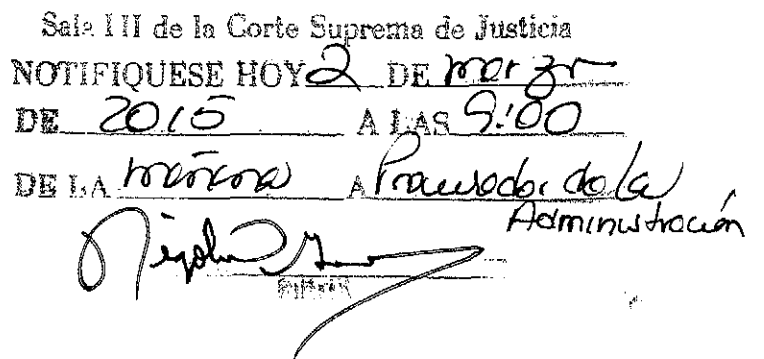 Sala III de la Corte Suprema de Justicia
NOTIFIQUESE HOY 2 DE marzo
DE 2015 A LAS 9:00
DE LA mañana A Procurador de la
Administración